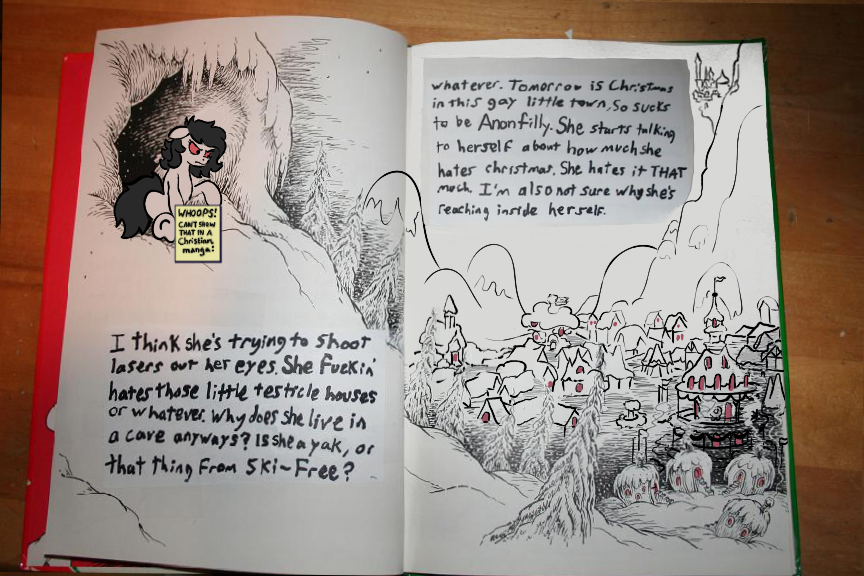 WHOOPS!
CAN'T SHOW
THAT IN A
Christian
manga!
I think she's trying to shoot
lasers out her eyes. She fuckin'
hates those little testicle houses
or whatever. Why does she live in
a cave anyways? Is she a yak, or
that thing from Ski-Free?
whatever. Tomorrow is Christmas
in this gay little town, So sucks
to be Anonfilly. She starts talking
to herself about how much she
hates christmas. She hates it THAT
much. I'm also not sure why she's
reaching inside herself.